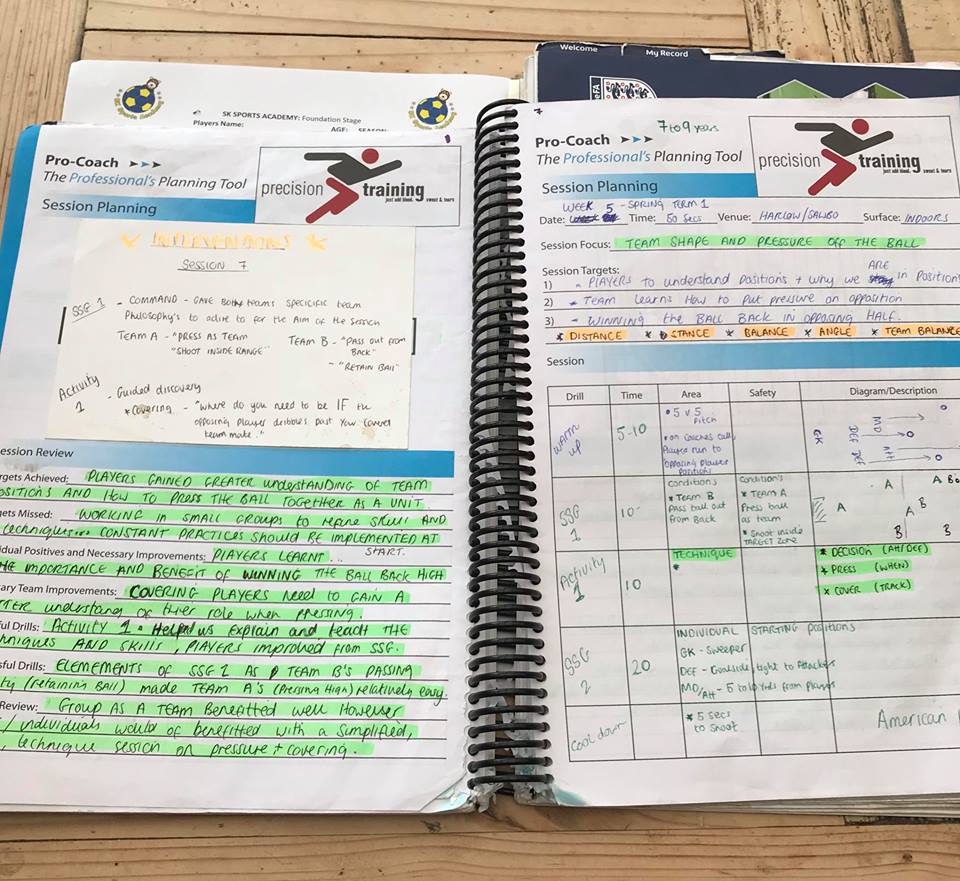 Welcome
My Record
SK SPORTS ACADEMY: Foundation Stage
Players Name:
AGE:
SEASON
Pro-Coach
The Professional's Planning Tool
Session Planning
precision
training
just add blood, sweat & tears
INTERVENTIONS
SESSION 7
SSG 1 - COMMAND - GAVE Both teams SPECIFIC team
Philosophy's to adire to for the Aim of the Session
TEAM A - "PRESS AS TEAM TEAM B - "PASS out from
"SHOOT INSIDE RANGE" BACK"
- "RETAIN BALL"
Activity 1 - Guided discovery
* Covering - "Where do you need to be IF the
opposing Player dribbles past Your
team mate."
ession Review
rgets Achieved: PLAYERS GAINED GREATER understanding OF TEAM
OSITIONS AND HOW TO PRESS THE BALL TOGETHER AS A UNIT.
gets Missed: WORKING IN SMALL GROUPS to refine skill AND
technique CONSTANT PRACTICES SHOULD BE IMPLEMENTED AT
START.
dual Positives and Necessary Improvements: PLAYERS LEARNT
HE IMPORTANCE AND BENEFIT OF WINNING THE BALL BACK HIGH
ary Team Improvements: COVERING PLAYERS NEED to GAIN A
understang of thier role when pressing.
ful Drills: Activity 1 - Helped us Explain and teach THE
hniques AND SKILLS, PLAYERS improved from SSG.
sful Drills: ELEMEMENTS OF SSG 2 AS TEAM B'S PASSING
ty (retaining BALL) made TEAM A's (Pressing High) relatively easy.
Review: Group AS A TEAM Benefitted well However
individuals would of benefitted with a simplified,
technique session on pressure + covering.
7 to 9 years
Pro-Coach
The Professional's Planning Tool
precision
training
just add blood, sweat & tears
Session Planning
WEEK 5 - SPRING TERM 1
Date: Time: 50 secs Venue: HARLOW/ Surface: INDOORS
Session Focus: TEAM SHAPE AND PRESSURE OFF THE BALL
Session Targets:
1) - PLAYERS to understand positions + why we ARE in Positions
2) - TEAM learns How to put pressure on opposition
3) - WINNING the BALL BACK IN OPPOSING HALF.
* DISTANCE * STANCE * BALANCE * ANGLE * TEAM BALANCE
Session
Drill Time Area Safety Diagram/Description
WARM UP 5-10
* 5 v 5
Pitch
* on coaches call
Player run to
opposing player
positions
GK DEF DEF MD Att
SSG 1 10-
Conditions
* Team B
Pass ball out
from Back
Conditions
* TEAM A
Press ball
as team
* Shoot inside
TARGET Zone
A A B
A A B
B B
Activity 1 10
TECHNIQUE
*
* DECISION (Att/DEF)
* PRESS (WHEN)
* COVER (TRACK)
SSG 2 20
INDIVIDUAL STARTING POSITIONS
GK - Sweeper
DEF - Goalside, tight to Attackers
MD/Att - 5 to 10 yrds from Players
Cool down
* 5 secs
to Shoot
American